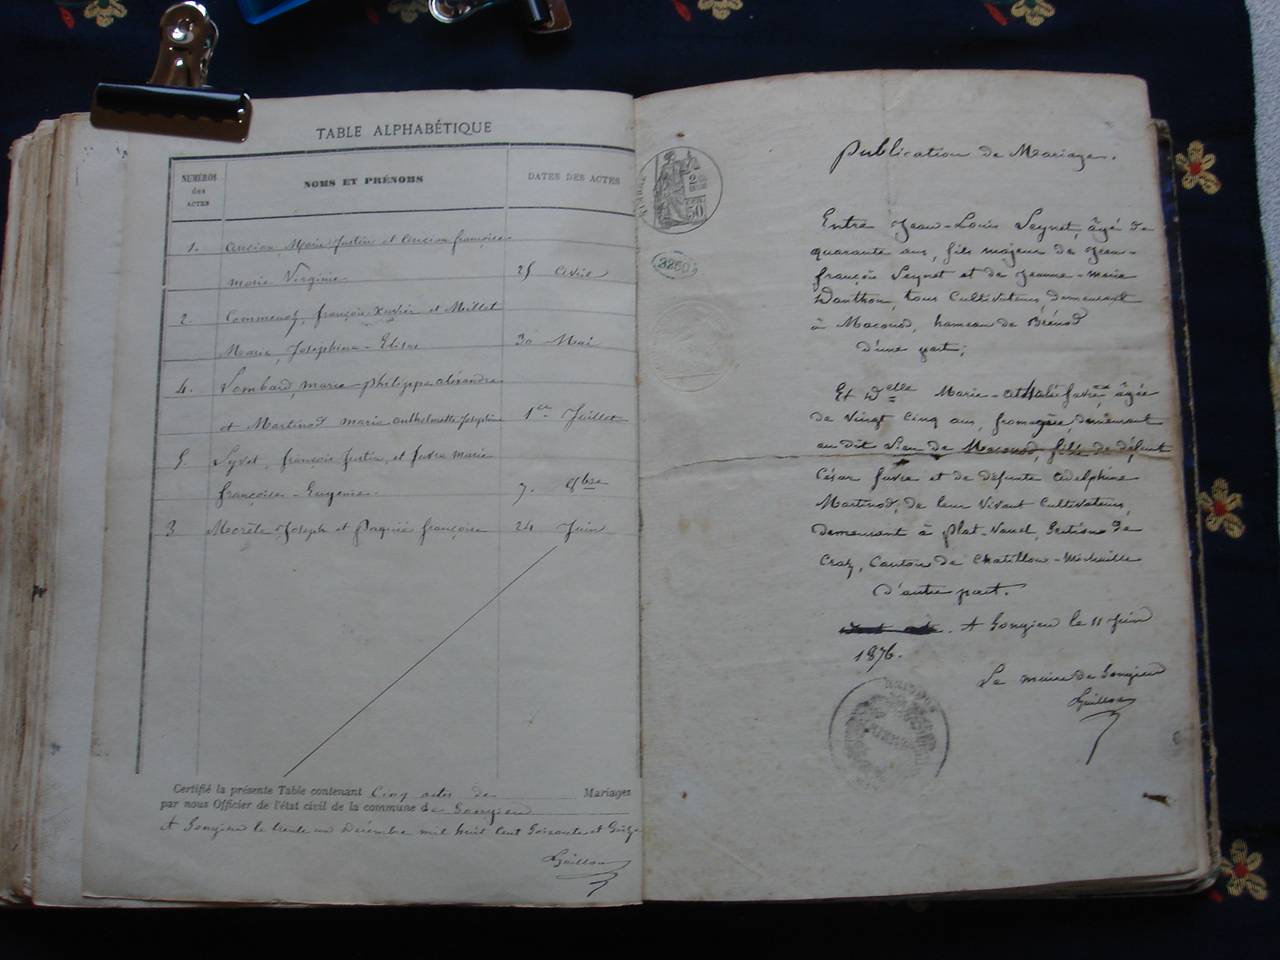 TABLE ALPHABÉTIQUE
NUMÉROS des ACTES
NOMS ET PRÉNOMS
DATES DES ACTES
1. Ancian, Marie Justin et Ancian françoise
marie Virginie. 25 Avril
2. françois Xavier et Millet
Marie, Josephine-Elise 30 Mai
4. Lombard, marie-philippe alexandre
et Martinod marie anthelmette Josephine 1er Juillet
5. françois Justin, et favre marie
françoise-Eugenie. 7. 9bre
3 Joseph et françoise 24 Juin
Certifié la présente Table contenant Cinq actes de Mariages
par nous Officier de l'état civil de la commune de Songieu
A Songieu le trente un Décembre mil huit cent Soixante et Seize
Guillon
Publication de Mariage.
50
3250
Entre Jean-Louis Seyvet, âgé de
quarante ans, fils majeur de Jean-
françois Seyvet et de Jeanne-marie
tous Cultivateurs demeurant
à Maconod, hameau de Brénod
d'une part;
Et Delle Marie- favre, âgée
de Vingt Cinq ans, fromagère, demeurant
au dit lieu de Maconod, fille de défunt
César favre et de défunte Adelphine
Martinod, de leur Vivant Cultivateurs,
demeurant à Section de
Craz, Canton de Chatillon-Michaille
D'autre part.
A Songieu le 11 Juin
1876.
Le maire de Songieu
Guillon